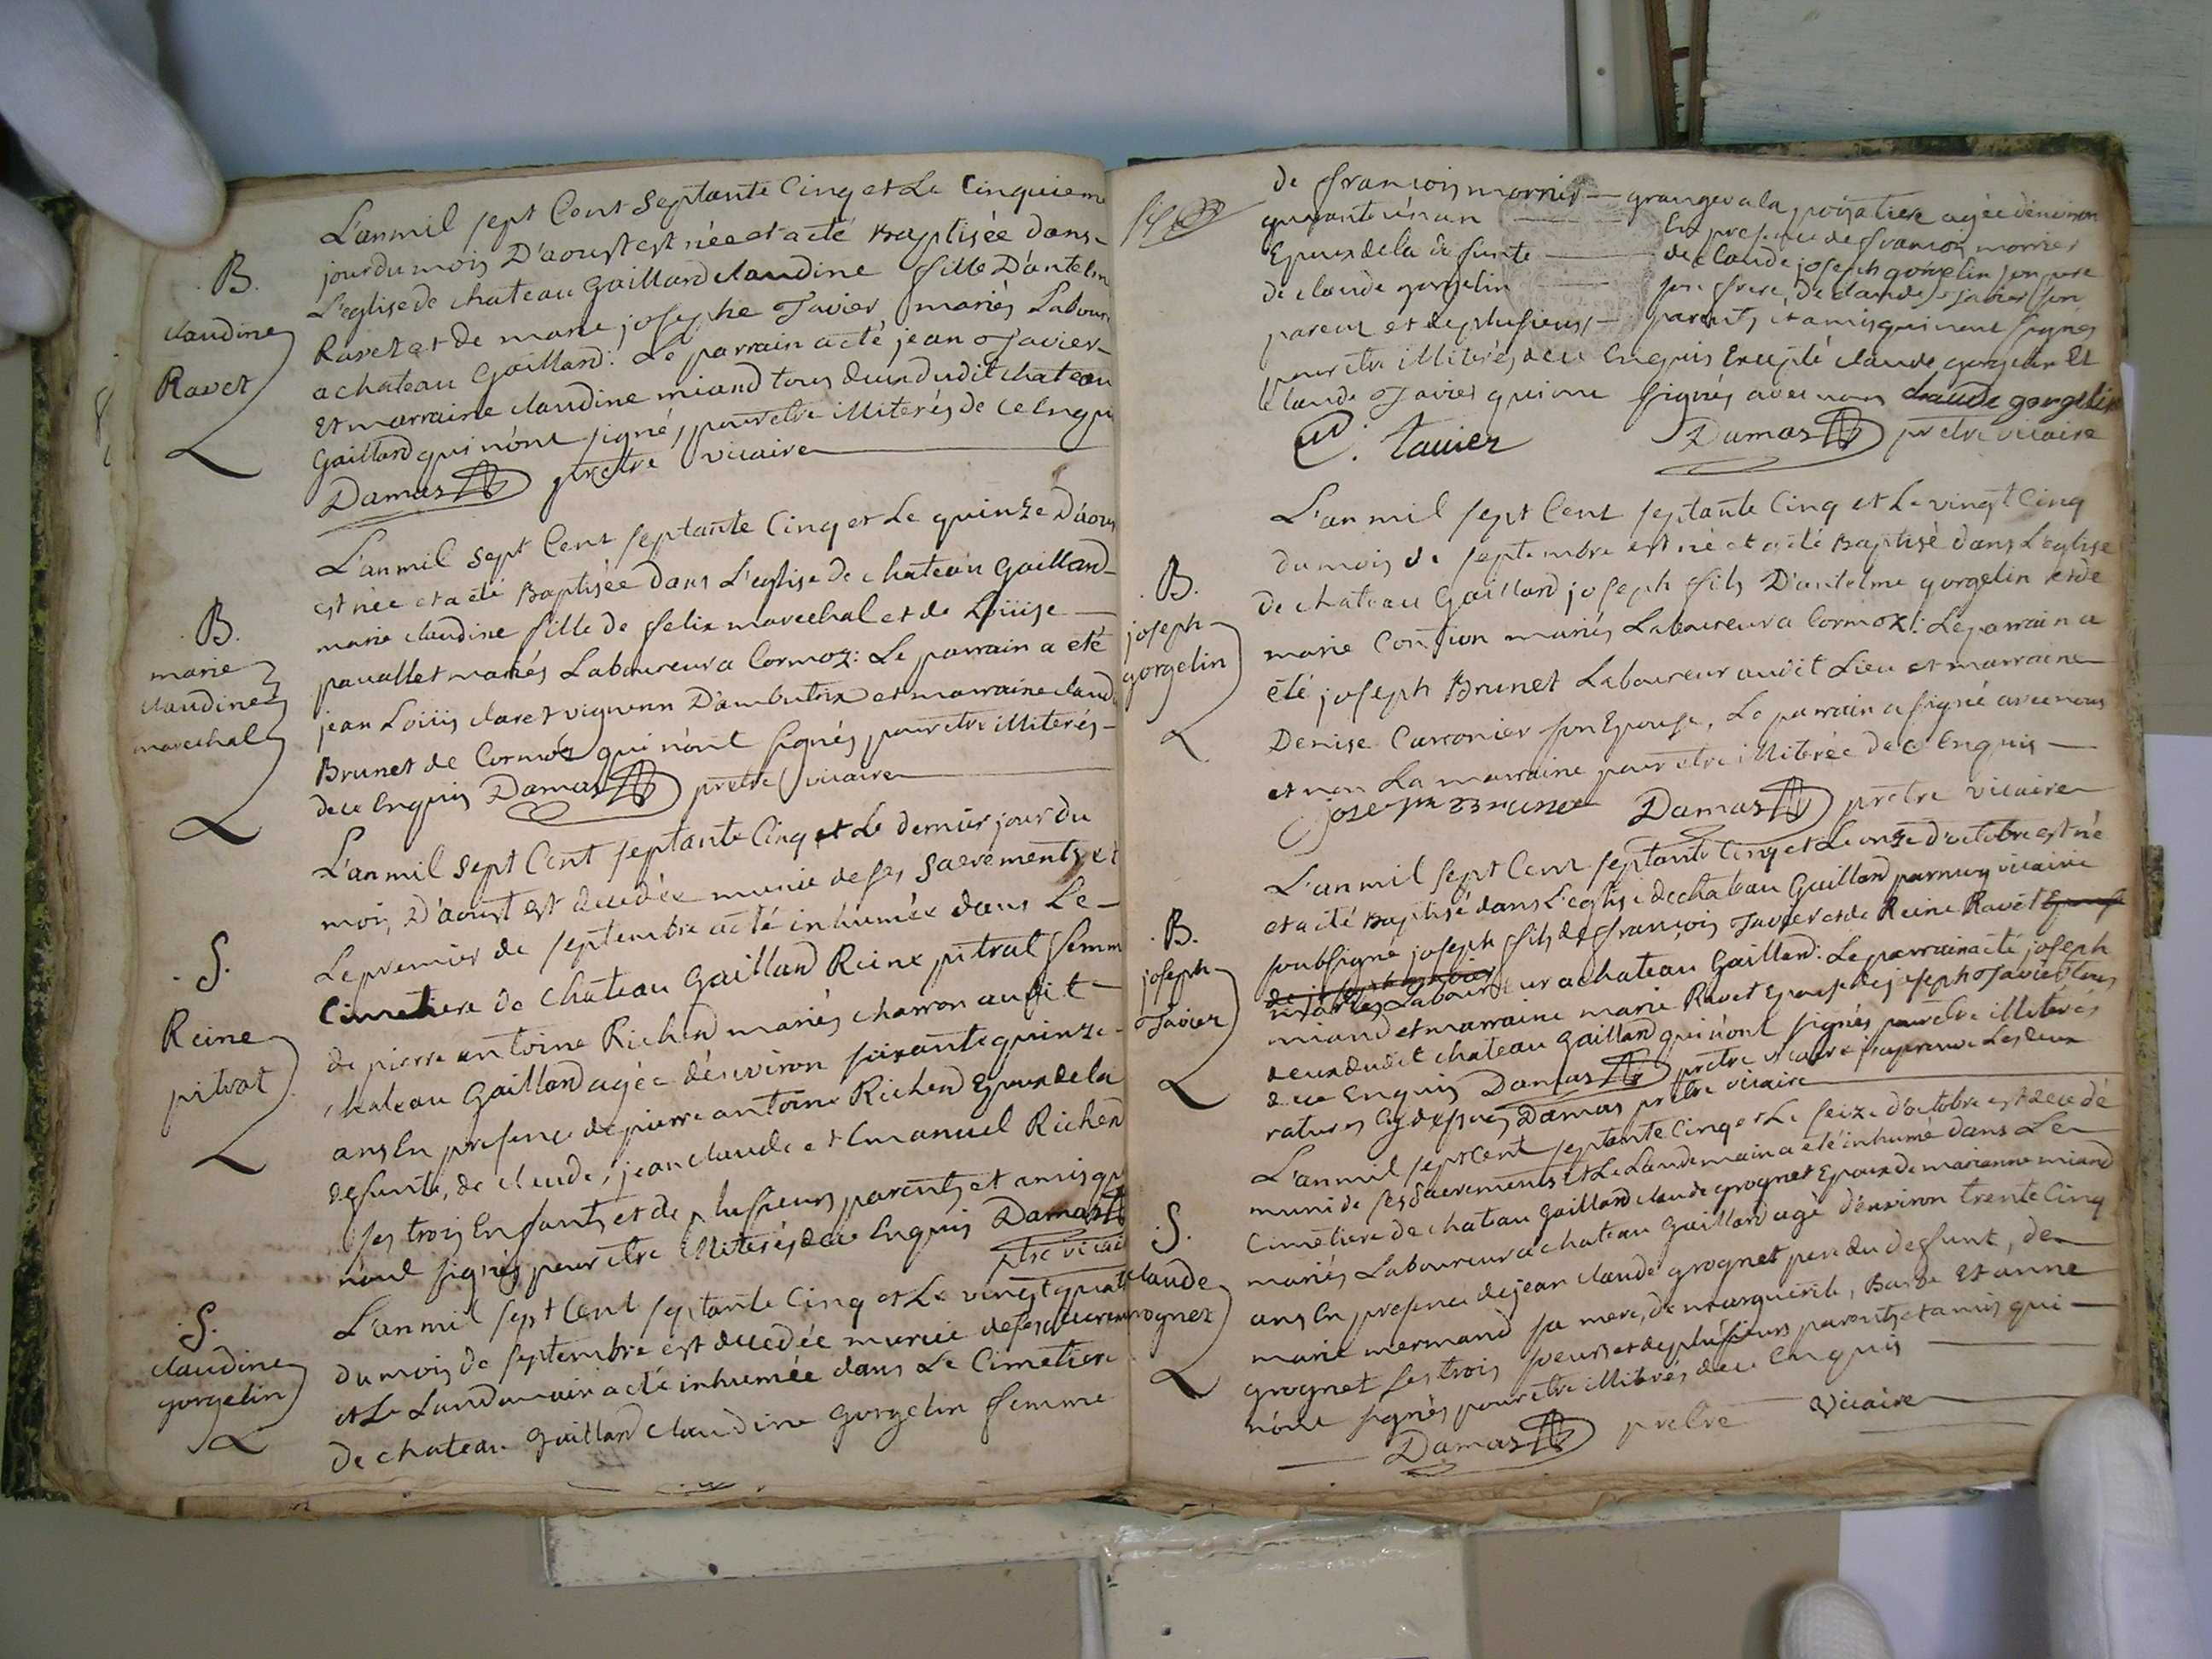 L'an mil sept Cent Septante Cinq et Le Cinquiem
jour du mois D'aoust est née et a eté Baptisée dans
L'eglise de chateau Gaillard claudine fille D'antelm
Ravet et de marie josephe Tavier mariés Labour
a chateau Gaillard. Le parrain a eté jean Tavier
Et marraine claudine miand tous deux dudit chateau
Gaillard qui n'ont signé, pour etre illiterés de ce Enqu
Damas prêtre vicaire
B.
claudine
Ravet
L'an mil Sept Cent septante Cinq et Le quinze D'aous
est née et a eté Baptisée dans L'eglise de chateau Gaillard
marie claudine fille de felix marechal et de Loüise
pavallet mariés Laboureur a Cormoz: Le parrain a eté
jean Loüis claret vigneron D'ambutrix et marraine claud
Brunet de Cormoz qui n'ont signés pour etre illiterés
de ce Enquis Damas prêtre vicaire
B.
marie
claudine
marechal
L'an mil Sept Cent septante Cinq et Le dernier jour du
mois D'aoust est decedée munie de ses Sacrements et
Le premier de septembre a eté inhumée dans Le
Cimetiere de chateau Gaillard Reine pitrat femm
de pierre antoine Richerd mariés charron audit
chateau Gaillard agée d'environ soixante quinze
ans En presence de pierre antoine Richerd Epoux de la
defunte, de claude, jean claude et Emanuel Richer
ses trois Enfants et de plusieurs parents et amis qu
n'ont signés pour etre illiterés de ce Enquis Damas
ptre vicai
S.
Reine
pitrat
L'an mil sept Cent septante Cinq et Le vingt quat
du mois de septembre est decedée munie de ses sacrem
et Le Landemain a eté inhumée dans Le Cimetiere
de chateau Gaillard claudine gorgelin femme
S.
claudine
gorgelin
de françois morrier granger a la agée d'environ
quarante un an En presence de françois morrier
Epoux de la defunte de claude joseph gorgelin son pere
de claude gorgelin son frere, de claude Tavier son
parent et de plusieurs parents et amis qui n'ont signés
pour etre illiterés de ce Enquis Excepté claude gorgelin Et
claude Tavier qui ont signés avec nous claude gorgelin
C. tavier Damas prêtre vicaire
L'an mil sept Cent septante Cinq et Le vingt Cinq
du mois de septembre est né et a eté Baptisé dans L'eglise
de chateau Gaillard joseph fils D'antelme gorgelin et de
marie mariés Laboureur a Cormoz: Le parrain a
été joseph Brunet Laboureur audit Lieu et marraine
Denise Carronier son Epouse, Le parrain a signé avec nous
et non La marraine pour etre illiterée de ce Enquis
joseph Brunet Damas prêtre vicaire
B.
joseph
gorgelin
L'an mil sept Cent septante Cinq et Le onze d'octobre est né
et a été Baptisé dans L'eglise de chateau Gaillard par moy vicaire
soubsigné joseph fils de françois Tavier et de Reine Ravet
mariés Laboureur a chateau Gaillard. Le parrain a eté joseph
miand et marraine marie Ravet Epouse de joseph Tavier tous
deux dudit chateau Gaillard qui n'ont signés pour etre illiterés
de ce Enquis Damas prêtre vicaire j'approuve Les deux
ratures Cy dessus Damas prêtre vicaire
B.
joseph
Tavier
L'an mil sept Cent septante Cinq et Le seize d'octobre est decedé
muni de ses Sacrements Et Le Landemain a eté inhumé dans Le
Cimetiere de chateau Gaillard claude grognet Epoux de marianne miand
mariés Laboureur a chateau Gaillard agé d'environ trente Cinq
ans En presence de jean claude grognet pere du deffunt, de
marie mermand sa mere, de marguerite, Et anne
grognet ses trois soeurs et de plusieurs parents et amis qui
n'ont signés pour etre illiterés de ce Enquis
Damas prêtre Vicaire
S.
claude
grognet